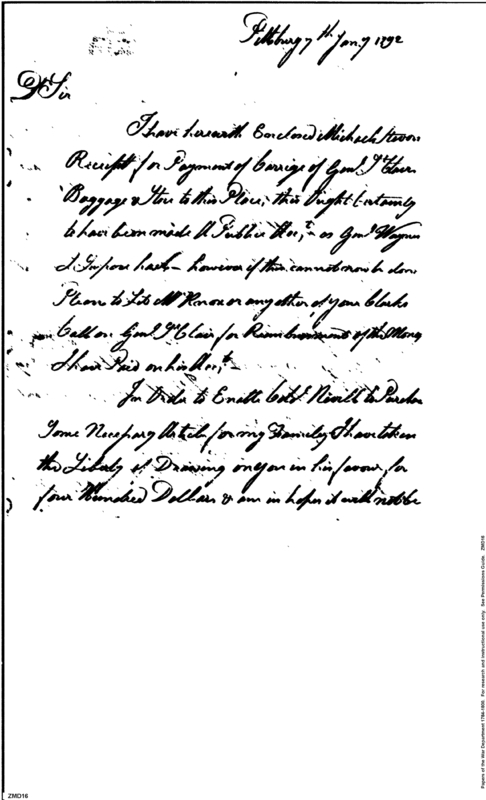 Pittsburg 7th Jany 1792
Dr Sir
I have herewith Enclosed Michael
Receipt for Payment of Carrige of Genl St Clair
Baggage & Store to this Place, this Ought Certainly
to have been made A Public Acct, as Genl Wayne
I Supose hath – however if this cannot now be done
Please to Let Mr Knox or any other of your Clarks
Call on Genl St Clair for Reimbursment of the Mony
I have Paid on his Acct –
In Order to Enable Colo Nevill to Purchas
Some Necessary Articls for my Famiely I have taken
the Liberty of Drawing on you in his favour for
four Hundred Dollars & am in hopes it will not be
ZMD16
Papers of the War Department 1784-1800. For research and instructional use only. See Permissions Guide. ZMD16